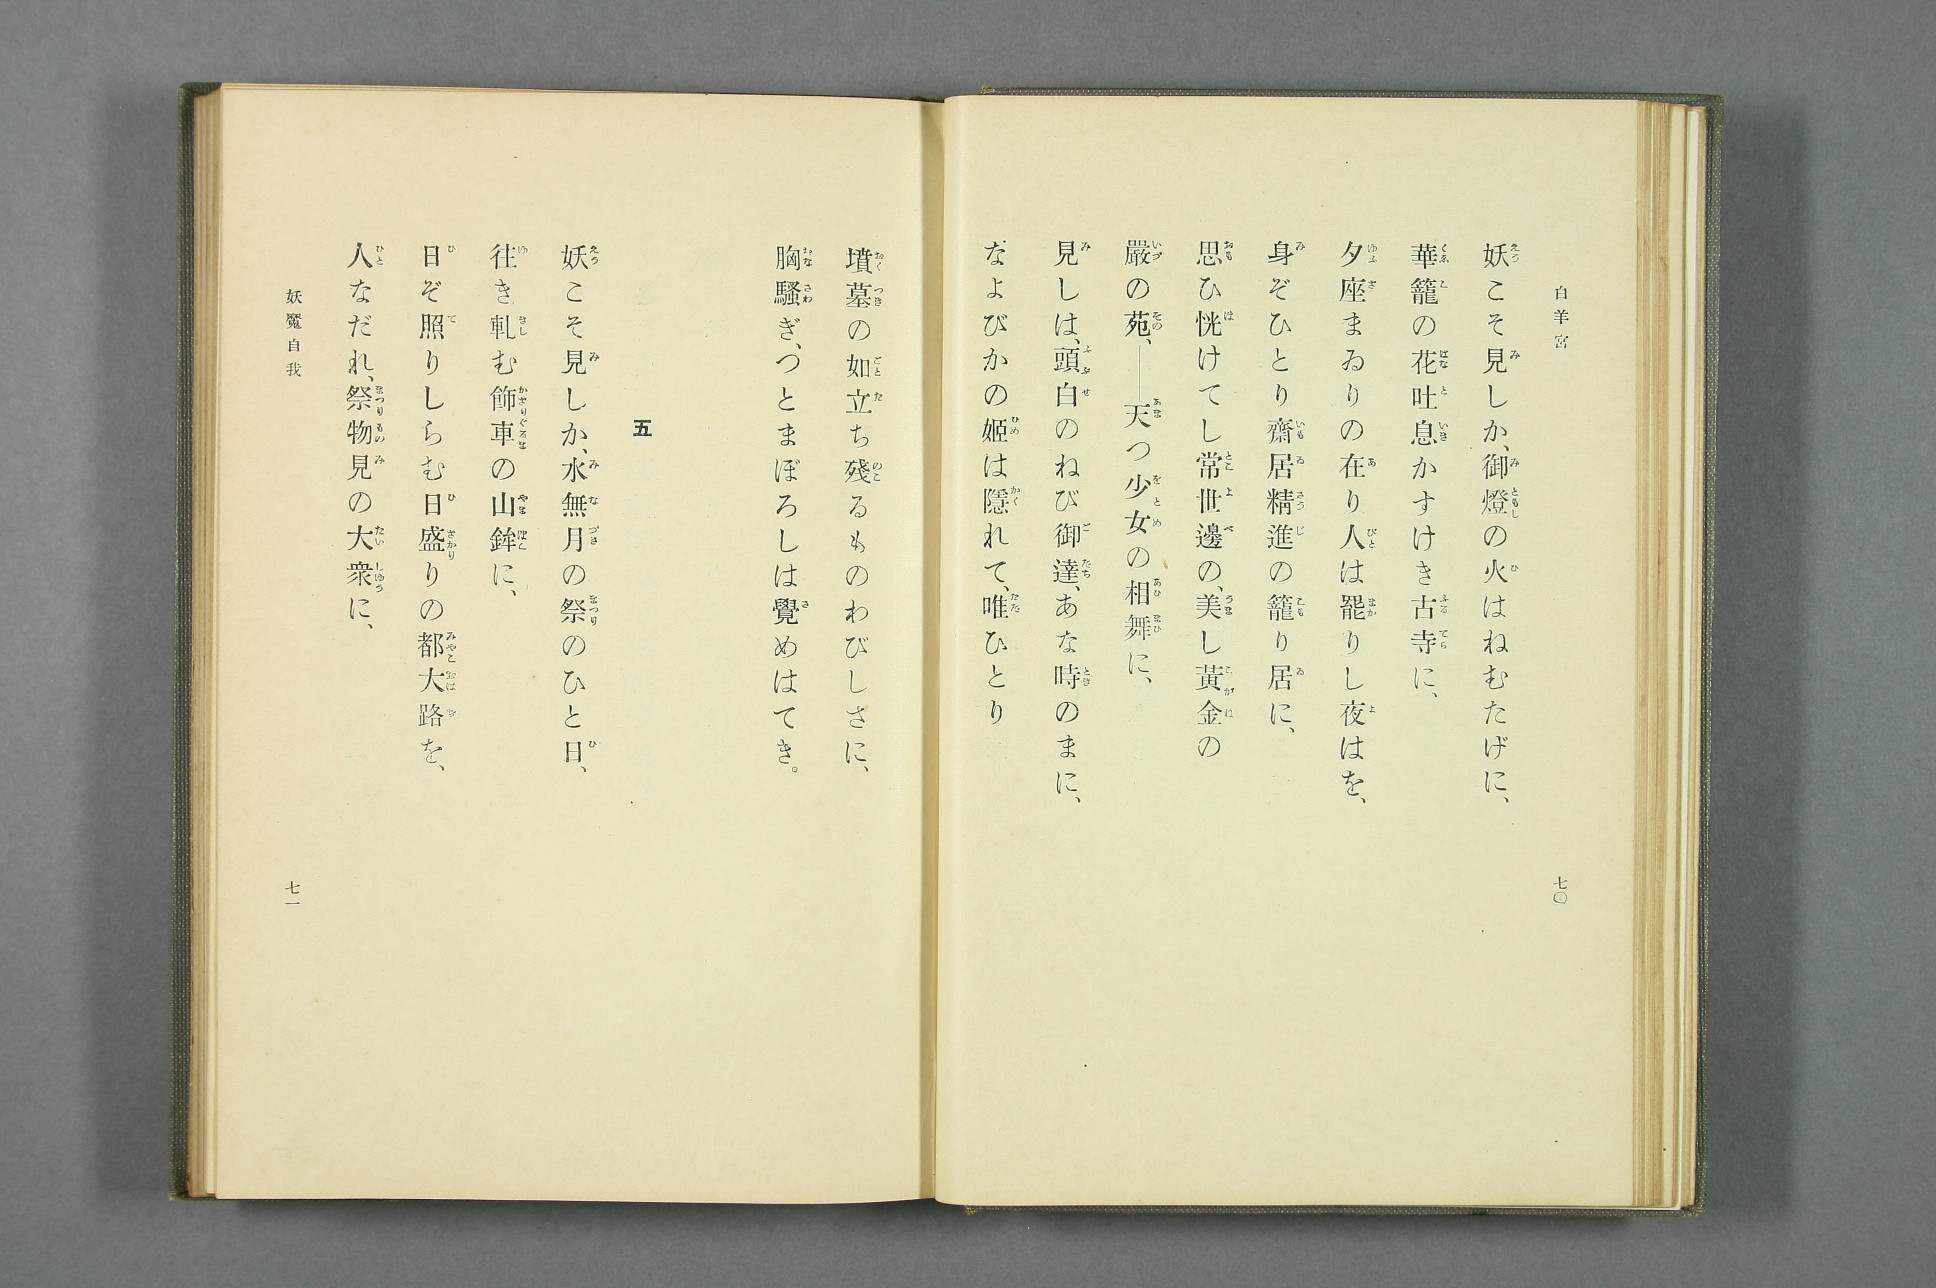 白羊宮
妖こそ見しか、御燈の火はねむたげに、
華籠の花吐息かすけき古寺に、
夕座まゐりの在り人は罷りし夜はを、
身ぞひとり齋居精進の籠り居に、
思ひ恍けてし常世邊の、美し黄金の
嚴の苑、――天つ少女の相舞に、
見しは、頭白のねび御達、あな時のまに、
なよびかの姬は隱れて、唯ひとり
七〇
墳墓の如立ち殘るものわびしさに、
胸騷ぎ、つとまぼろしは覺めはてき。
五
妖こそ見しか、水無月の祭のひと日、
往き軋む飾車の山鉾に、
日ぞ照りしらむ日盛りの都大路を、
人なだれ、祭物見の大衆に、
妖魔自我
七一